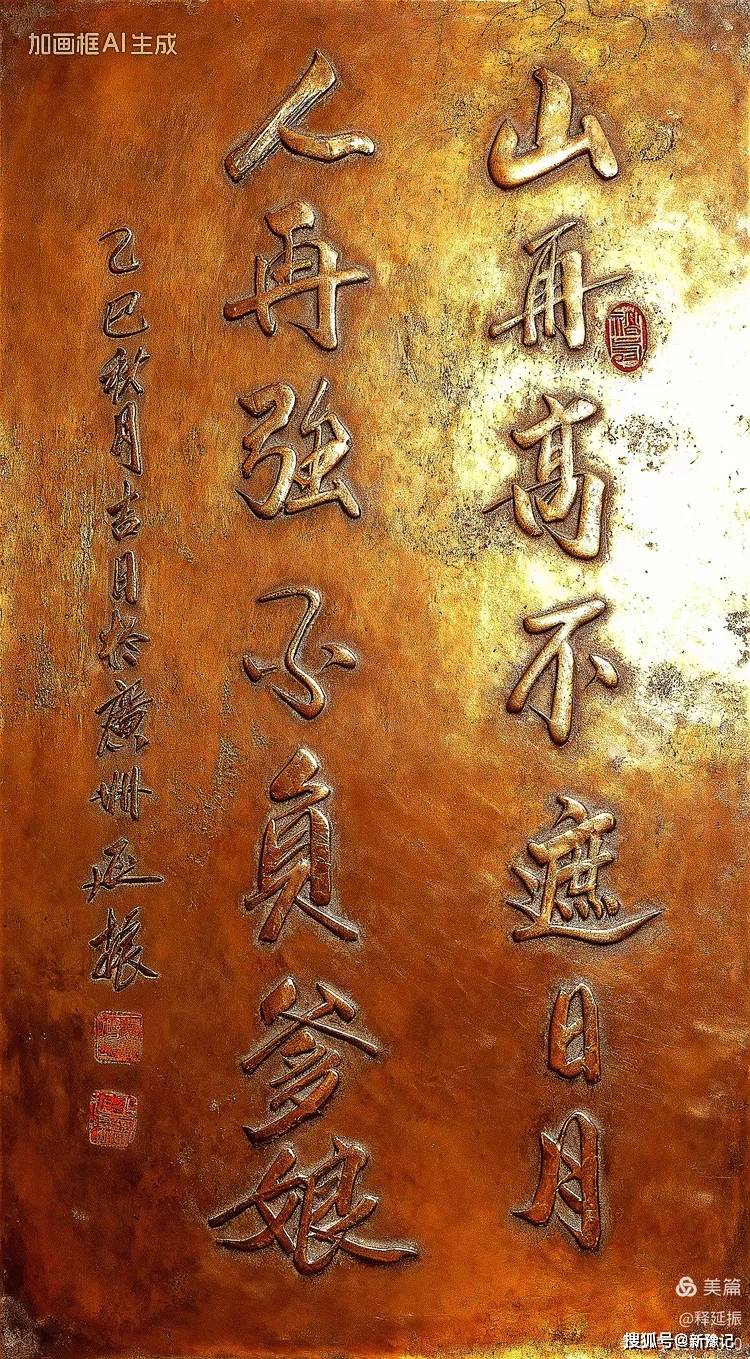 加画框AI生成
山再高不遮日月
人再强不負爹娘
乙巳秋月吉日於廣州延振
美篇
@释延振
搜狐号@新豫记